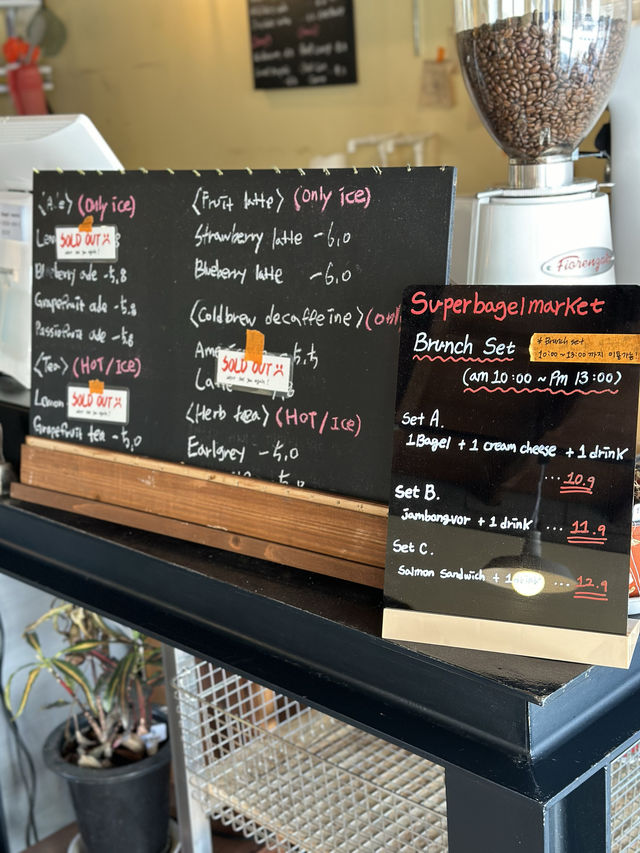 <Ade> (Only ice)
SOLD OUT
Blueberry ade -5.8
Grapefruit ade -5.8
Passionfruit ade -5.8
<Tea> (HOT/ICE)
Lemon
SOLD OUT
Grapefruit tea -5.0
<Fruit latte> (Only ice)
Strawberry latte -6.0
Blueberry latte -6.0
<Coldbrew decaffeine> (onl
Am
SOLD OUT
<Herb tea> (HOT/ICE)
Earlgrey -5.0
Fiorenzato
Superbagelmarket
Brunch Set
* Brunch set
10:00 ~ 13:00 까지 이용가능!
(am 10:00 ~ Pm 13:00)
Set A.
1Bagel + 1 cream cheese + 1 drink
... 10.9
Set B.
Jambongvor + 1 drink ... 11.9
Set C.
Salmon Sandwich + 1 ... 12.9